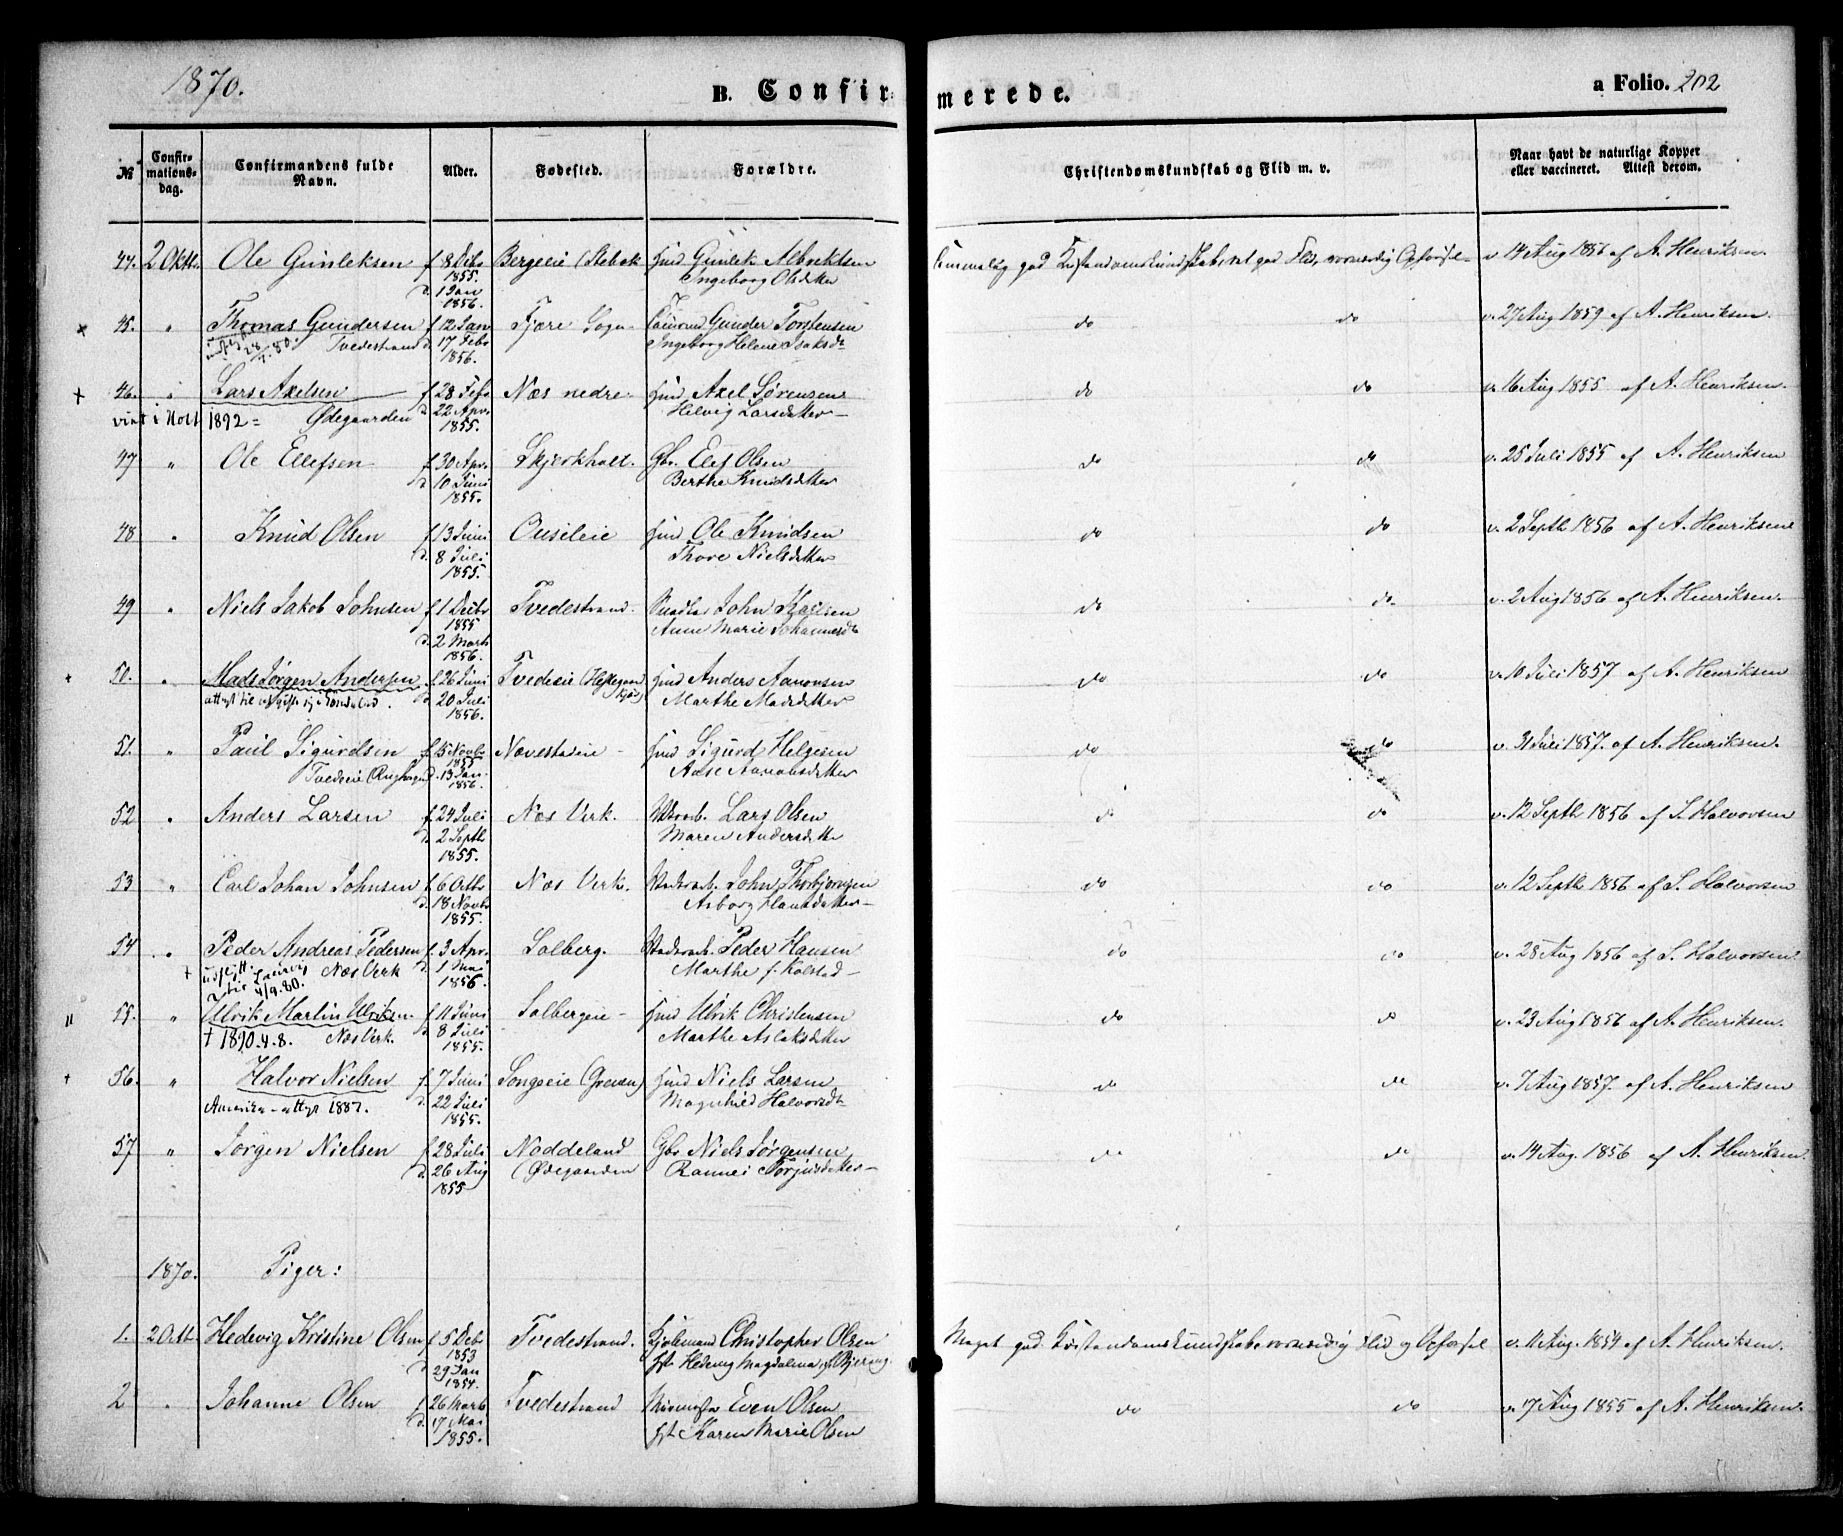 1870.
B. Confir-merede.
a Folio. 202
№
Confir-
mations-
dag.
Confirmandens fulde
Navn.
Alder.
Fødested.
Forældre.
Christendomskundskab og Flid m. v.
Naar havt de naturlige Kopper
eller vaccineret. Attest derom.
44. 2 Oktb. Ole Gunleksen f. 8 Decbr 1855. d. 1 Jan 1856. Bergeeie (Stebæk Gunlek Albrektsen
Ingeborg Olsdatter
god Kristendomskundskab, god Flid, Opførsel v. 14 Aug 1856 af A. Henriksen
45. " Thomas Gundersen f. 12 Jan d. 17 Febr 1856. Fjære Sogn Gunder Torstensen
28/4. 80. Tvedestrand Ingeborg Helene Isaksdt
do do v. 27 Aug 1859 af A. Henriksen.
+ 46. " Lars Axelsen f. 28 Febr d. 22 Apr. 1855. Næs nedre Axel Sørensen
viet i Holt 1892 = Ødegaarden Helvig Larsdatter
do do v. 16 Aug 1855 af A. Henriksen.
47 " Ole Ellefsen f. 30 Apr. d. 10 Juni 1855. Skjerkholt. Gbr. Elef Olsen
Berthe Knudsdatter
do do v. 25 Juli 1855 af A. Henriksen
48 " Knud Olsen f. 13 Juni d. 8 Juli 1855. Ouseleie Ole Knudsen
Thore Nielsdatter
do do v. 2 Septb 1856 af A. Henriksen
49 " Niels Jakob Johnsen f. 1 Decbr 1855 d. 2 Marts 1856. Tvedestrand. John
Anne Marie Johannesdt
do do v. 2 Aug 1856 af A. Henriksen.
+ 50. " Mads Jørgen Andersen f. 26 Juni d. 20 Juli 1856. Tvedeeie Anders Aanonsen
attest til at gifte sig i Marthe Madsdatter
do do v. 10 Juli 1857 af A. Henriksen
51. " Paul Sigurdsen f. 15 Novbr 1855 d. 13 Jan. 1856. Nævestadeie Sigurd Helgesen
Tvedeeie Aase Aanonsdatter
do do v. 31 Juli 1857. af A. Henriksen.
52 " Anders Larsen f. 24 Juli d. 2 Septb 1855. Næs Verk. Lars Olsen
Maren Andersdatter
do do v. 12 Septb 1856 af S. Halvorsen
53 " Carl Johan Johnsen f. 6 Octbr d. 18 Novbr 1855. Næs Verk. John Thorbjørnsen
Asborg Hansdatter
do do v. 12 Septb 1856 af S. Halvorsen
54 " Peder Andreas Pedersen f. 3 Apr. d. 1 Mai 1856. Solberg. Peder Hansen
+ udflytt. Laurvig 4/9. 80. Næs Verk Marthe f. Kolstad
do do v. 28 Aug 1856 af S. Halvorsen
" 55. " Ulrik Martin Ulriksen. f. 11 Juni d. 8 Juli 1855. Solbergeie Ulrik Christensen
† 1890. 4. 8. Næs Verk. Marthe Aslaksdatter
do do v. 23 Aug 1856 af A. Henriksen.
+ 56. " Halvor Nielsen f. 7 Juni d. 22 Juli 1855. Songeeie Niels Larsen
Amerika - attest 1887. Magnhild Halvorsdt
do do v. 7 Aug 1857. af A. Henriksen
57 " Jørgen Nielsen f. 28 Juli d. 26 Aug 1855 Noddeland (Ødegaarden Gbr Niels Jørgensen
Rannei Torjusdatter
do do v. 14 Aug. 1856 af A. Henriksen.
1870. Piger:
1. 2 Octb. Hedevig Kristine Olsen f. 5 Decbr 1853 d. 29 Jan 1854. Tvedestrand. Christopher Olsen
Hedevig Magdalena f. Bjerring
Meget god Kristendomskundskab, Flid og Opførsel v. 11 Aug. 1854 af A. Henriksen.
2 " Johanne Olsen f. 26 Marts d. 17 Mai 1855. Tvedestrand Even Olsen
Karen Marie Olsen
do do v. 17 Aug 1855 af A. Henriksen.